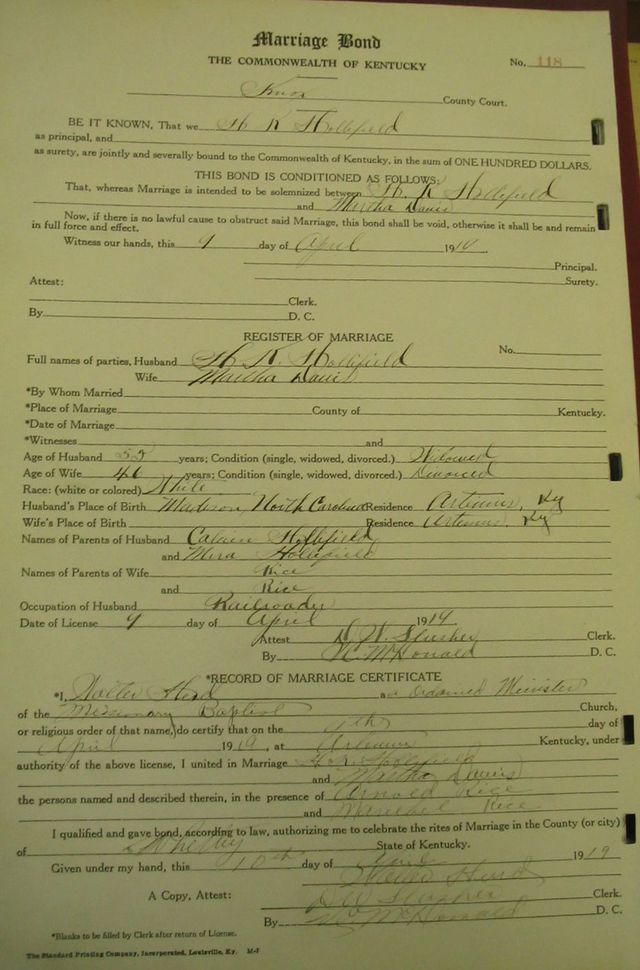 Marriage Bond
THE COMMONWEALTH OF KENTUCKY
No. 118
Knox County Court.
BE IT KNOWN, That we H K Hollifield
as principal, and
as surety, are jointly and severally bound to the Commonwealth of Kentucky, in the sum of ONE HUNDRED DOLLARS.
THIS BOND IS CONDITIONED AS FOLLOWS:
That, whereas Marriage is intended to be solemnized between H K Hollifield
and Martha Davis
Now, if there is no lawful cause to obstruct said Marriage, this bond shall be void, otherwise it shall be and remain
in full force and effect.
Witness our hands, this 9 day of April 19
Principal.
Attest: Surety.
Clerk.
By D. C.
REGISTER OF MARRIAGE
Full names of parties, Husband H K. Hollifield No.
Wife Martha Davis
*By Whom Married
*Place of Marriage County of Kentucky.
*Date of Marriage
*Witnesses and
Age of Husband years; Condition (single, widowed, divorced.) Widowed
Age of Wife 46 years; Condition (single, widowed, divorced.) Divorced
Race: (white or colored) White
Husband's Place of Birth Madison, North Carolina Residence Artemus, Ky
Wife's Place of Birth Residence Artemus, Ky
Names of Parents of Husband Hollifield
and Hollifield
Names of Parents of Wife Rice
and Rice
Occupation of Husband Railroader
Date of License 9 day of April 19
Attest D. W. Slusher Clerk.
By McDonald D. C.
*RECORD OF MARRIAGE CERTIFICATE
*I, Walter a Ordained Minister
of the Missionary Baptist Church,
or religious order of that name, do certify that on the 9th day of
April 1919, at Artemus Kentucky, under
authority of the above license, I united in Marriage H. K. Hollifield
and Martha Davis
the persons named and described therein, in the presence of Arnold Rice
and Rice
I qualified and gave bond, according to law, authorizing me to celebrate the rites of Marriage in the County (or city)
of Whitley State of Kentucky.
Given under my hand, this 10th day of 1919
A Copy, Attest: D W Slusher Clerk.
By McDonald D. C.
*Blanks to be filled by Clerk after return of License.
The Standard Printing Company, Incorporated, Louisville, Ky. M-7